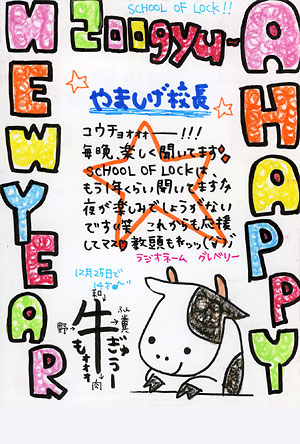 SCHOOL OF LOCK!!
A HAPPY
NEW YEAR
2009gyu~
やましげ校長
コウチョォォォー!!!
毎晩、楽しく聞いてます
SCHOOL OF LOCKは、
もう1年くらい聞いてますな
夜が楽しみでしょうがない
です(笑 これからも応援
してマス 教頭もねっっ(^^)
ラジオネーム グレベリー
12月25日で
14才
和
野
牛
糞
肉
ぎゅうー
もォォォ